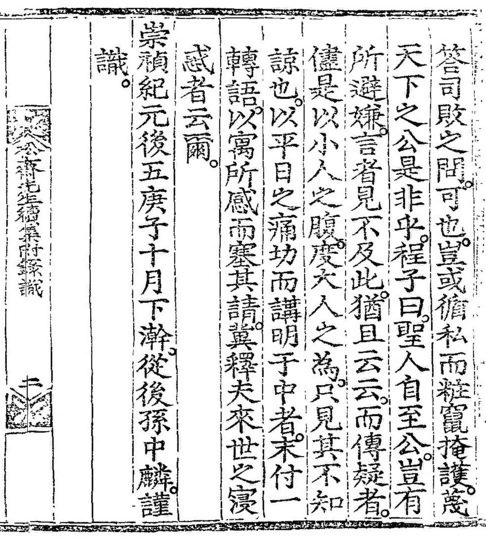 答司敗之問。可也。豈或循私而粧竄掩護。蔑
天下之公是非乎。程子曰。聖人自至公。豈有
所避嫌。言者見不及此。猶且云云。而傳疑者。
儘是以小人之腹。度大人之為。只見其不知
諒也。以平日之痛功而講明于中者。末付一
轉語。以寓所感而塞其請。冀釋夫來世之寖
惑者云爾。
崇禎紀元後五庚子十月下澣。從後孫中麟。謹
識。
齋先生續集附錄識
二